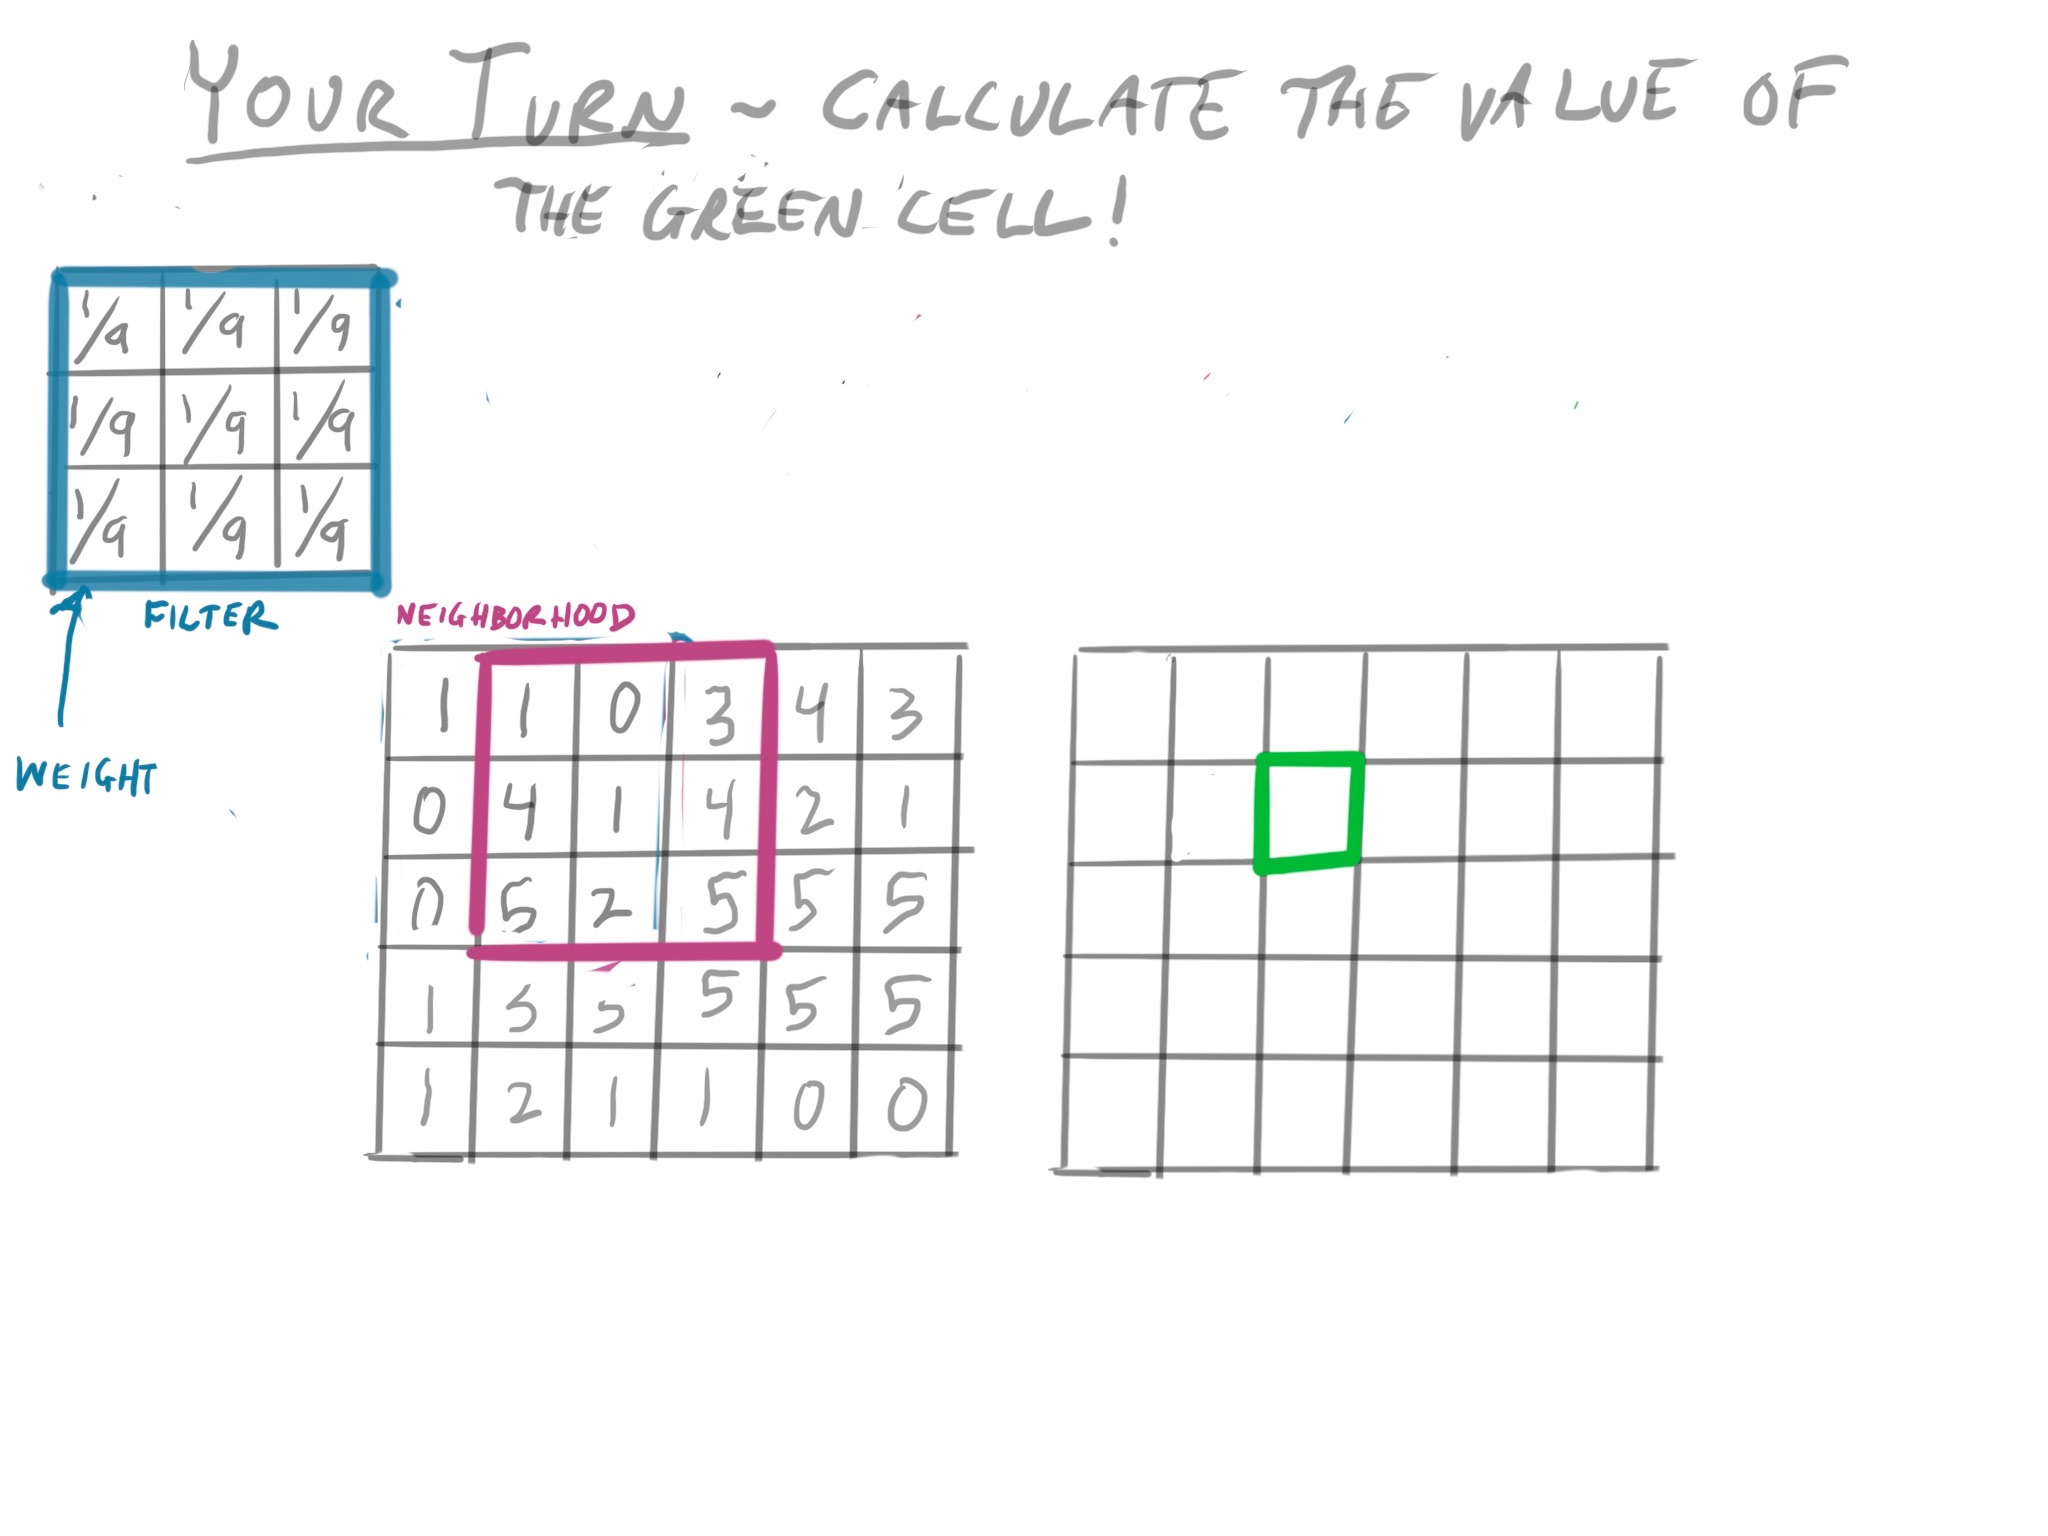 YOUR TURN ~ CALCULATE THE VALUE OF
THE GREEN CELL!
1/9 1/9 1/9
1/9 1/9 1/9
1/9 1/9 1/9
FILTER
WEIGHT
NEIGHBORHOOD
1 1 0 3 4 3
0 4 1 4 2 1
0 5 2 5 5 5
1 5 5 5 5
1 2 1 1 0 0